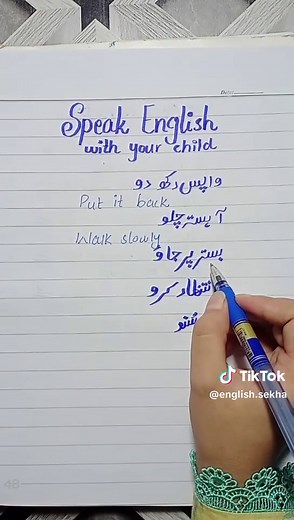 Speak English
with your child
واپس رکھ دو
Put it back
آہستہ چلو
Walk slowly
بستر پر جاؤ
انتظار کرو
TikTok
@english.sekha
48